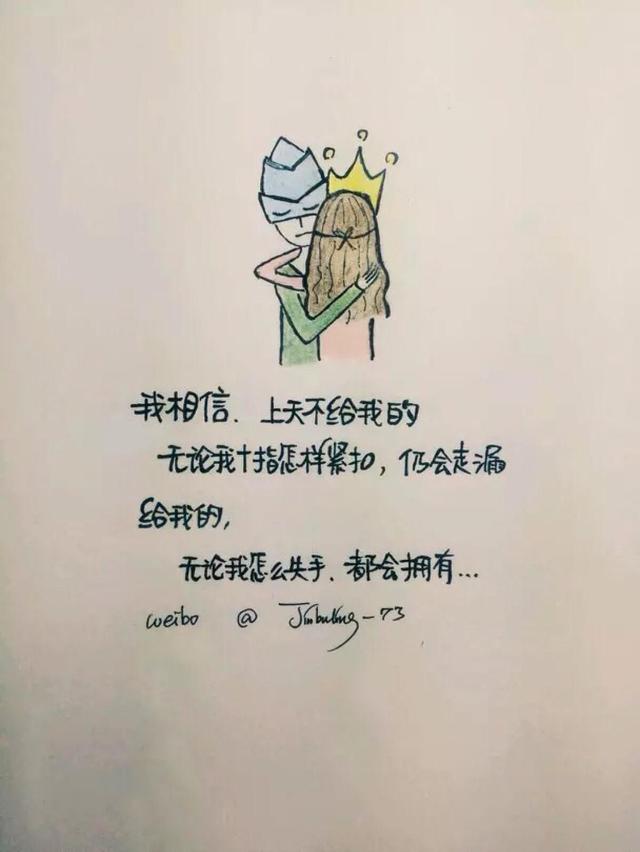 我相信、上天不给我的
无论我十指怎样紧扣,仍会走漏
给我的,
无论我怎么失手、都会拥有...
weibo @